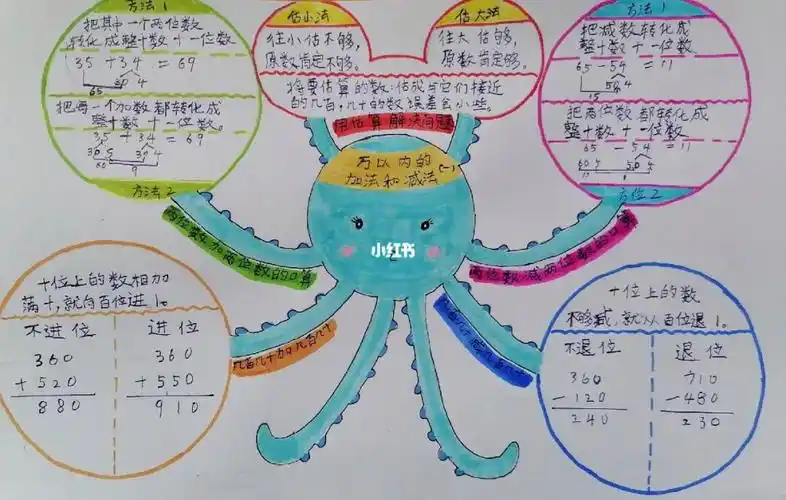 方法1
把其中一个两位数
转化成整十数十一位数
35+34=69
30 4
65
把每一个加数都转化成
整十数十一位数。
35+34=69
30 5 30 4
60 9
方法2
估小法
往小估不够,
原数肯定不够。
估大法
往大估够,
原数肯定够。
将要估算的数,估成与它们接近
的几百,几十的数误差会小些。
用估算解决问题
方法1
把减数转化成
整十数十一位数
65-54=11
50 4
15
把两位数都转化成
整十数十一位数
65-54=11
60 5 50 4
方位2
万以内的
加法和减法(一)
小红书
两位数加两位数的口算
两位数减两位数的口算
几百几十加几百几十
十位上的数相加
满十,就向百位进1。
不进位
360
+520
880
进位
360
+550
910
十位上的数
不够减,就从百位退1。
不退位
360
-120
240
退位
710
-480
230